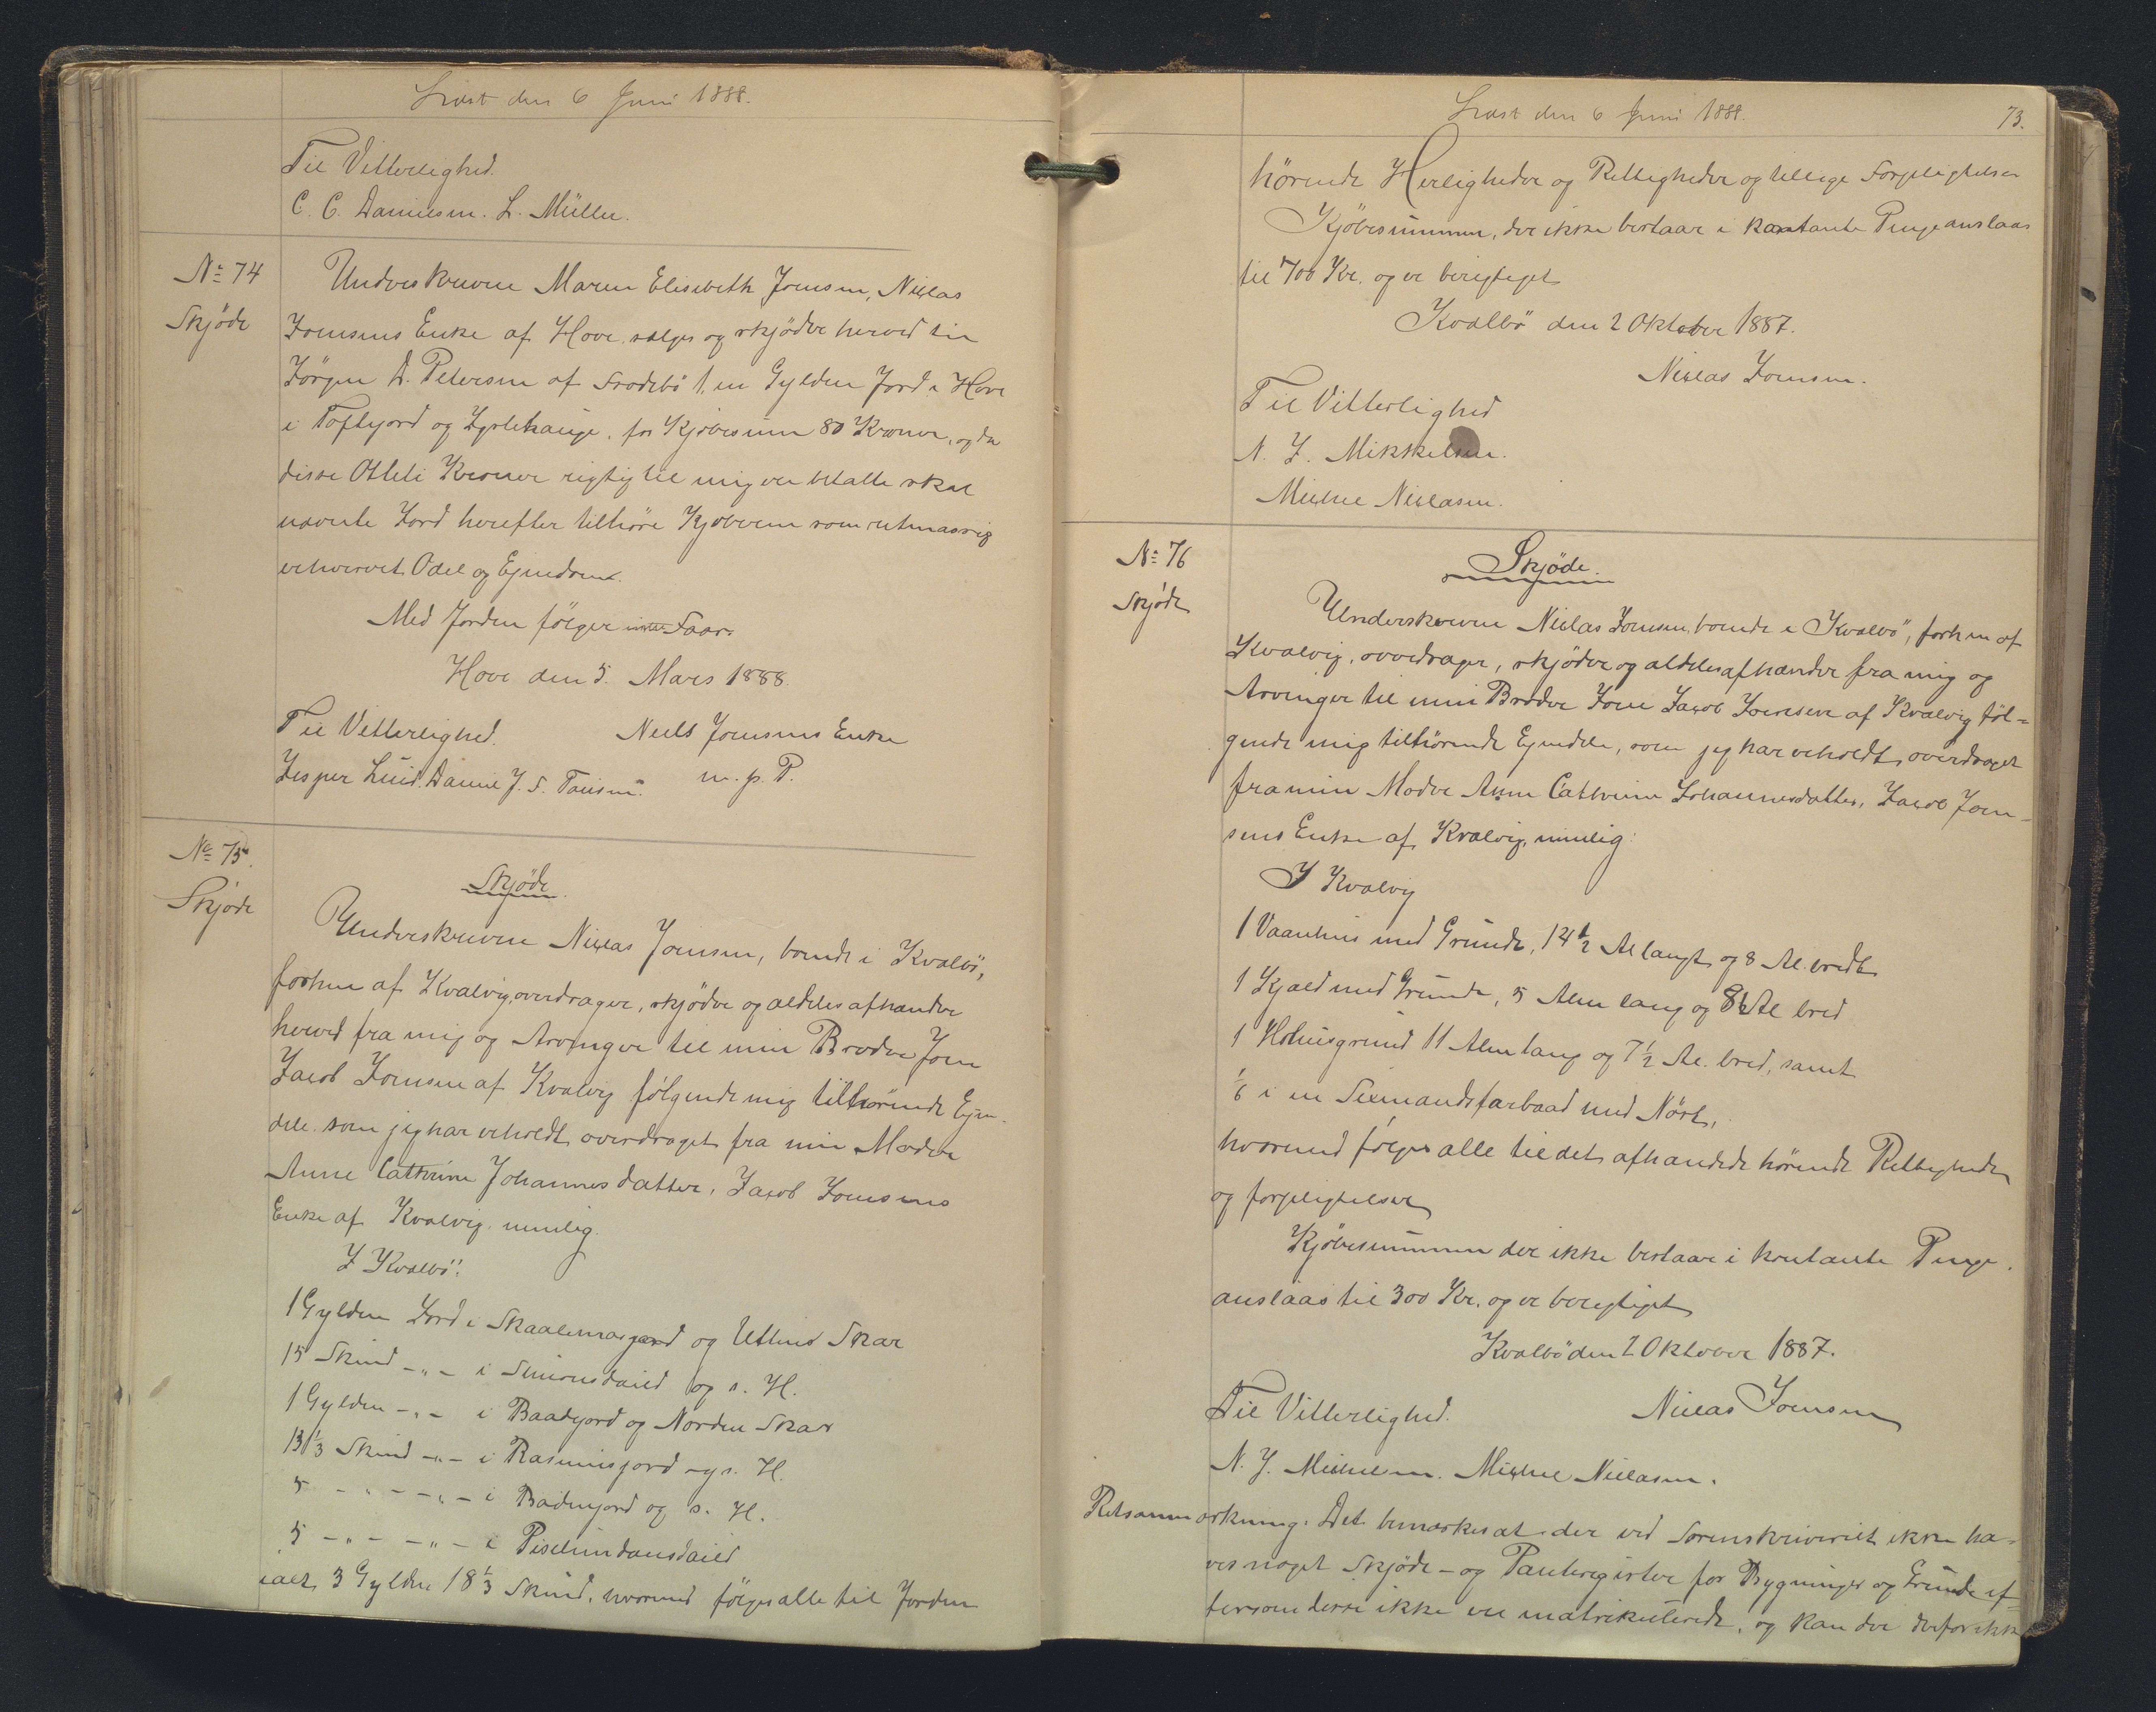 Læst den 6 Juni 1888.
Til Vitterlighed.
C. C. Danielsen. L. Müller.
No 74
Skjöde
Underskrevne Maren Elisebeth Joensen, Niclas
Joensens Enke af Hove sælger og skjöder herved til
Jörgen D. Petersen af Frodebö 1, en Gylden Jord i Hove
i Toftejord og hauge. for Kjöbesum 80 Kroner, og da
disse Otteti Kroner rigtig til mig er betalte skal
nævnte Jord herefter tilhöre Kjöberen som retmæssig
erhvervet Odel og Ejendom.
Med Jorden fölger Faar
Hove den 5. Mars 1888.
Til Vitterlighed. Niels Joensens Enke
Jesper Luid. Daniel J. F. Tausen. m. p. P.
No 75.
Skjöde
Skjöde.
Underskrevne Niclas Joensen, boende i Kvalbö,
forhen af Kvalvig, overdrager, skjöder og aldeles afhænder
herved fra mig og Arvinger til min Broder Joen
Jacob Joensen af Kvalvig fölgende mig tilhörende Ejen-
dele som jeg har erholdt overdraget fra min Moder
Anne Cathrine Johannesdatter, Jacob Joensens
Enke af Kvalvig nemlig.
I Kvalbö:
1 Gylden Jord i Skaalemasjord og Uttens Skar
15 Skind -"- i Simonsdaild og s. H.
1 Gylden -"- i Baadejord og Norden Skar
13 1/3 Skind -"- i Rasmusjord og s. H.
5 -"- -"- i Badenjord og s. H.
5 -"- -"- i
ialt 3 Gylden 18 1/3 Skind, hvormed fölges alle til Jorden
Læst den 6 Juni 1888.
73.
hörende Herligheder og Rettigheder og tillige Forpligtelser
Kjöbesummen, der ikke bestaar i kontante Penge anslaas
til 700 Kr. og er berigtiget
Kvalbö den 2 Oktober 1887.
Niclas Joensen.
Til Vitterlighed
N. J. Mikkelsen.
Michael Niclasen.
No 76
Skjöde
Skjöde.
Underskrevne Niclas Joensen, boende i Kvalbö, forhen af
Kvalvig, overdrager, skjöder og aldeles afhænder fra mig og
Arvinger til min Broder Joen Jacob Joensen af Kvalvig föl-
gende mig tilhörende Ejendele, som jeg har erholdt overdraget
fra min Moder Anne Cathrine Johannesdatter, Jacob Joen-
sens Enke af Kvalvig, nemlig:
I Kvalvig
1 Vaanhus med Grunde, 14 1/2 Al langt og 8 Al. bredt
1 Kjald med Grunde, 5 Alen lang og Al bred
1 Höhusgrund 11 Alen lang og 7 1/2 Al. bred, samt
1/6 i en Sexmandsfarbaad med Nöst,
hvormed fölges alle til det afhændede hörende Rettigheder
og forpligtelser
Kjöbesummen der ikke bestaar i kontante Penge,
anslaas til 300 Kr. og er berigtiget
Kvalbö den 2 Oktober 1887.
Til Vitterlighed. Niclas Joensen
N. J. Michelsen. Michael Niclasen.
Retsanmærkning. Det bemærkes at der ved Sorenskriveriet ikke ha-
ves noget Skjöde- og Panteregister for Bygninger og Grunde ef-
tersom disse ikke ere matrikulerede, og kan der derfor ikke